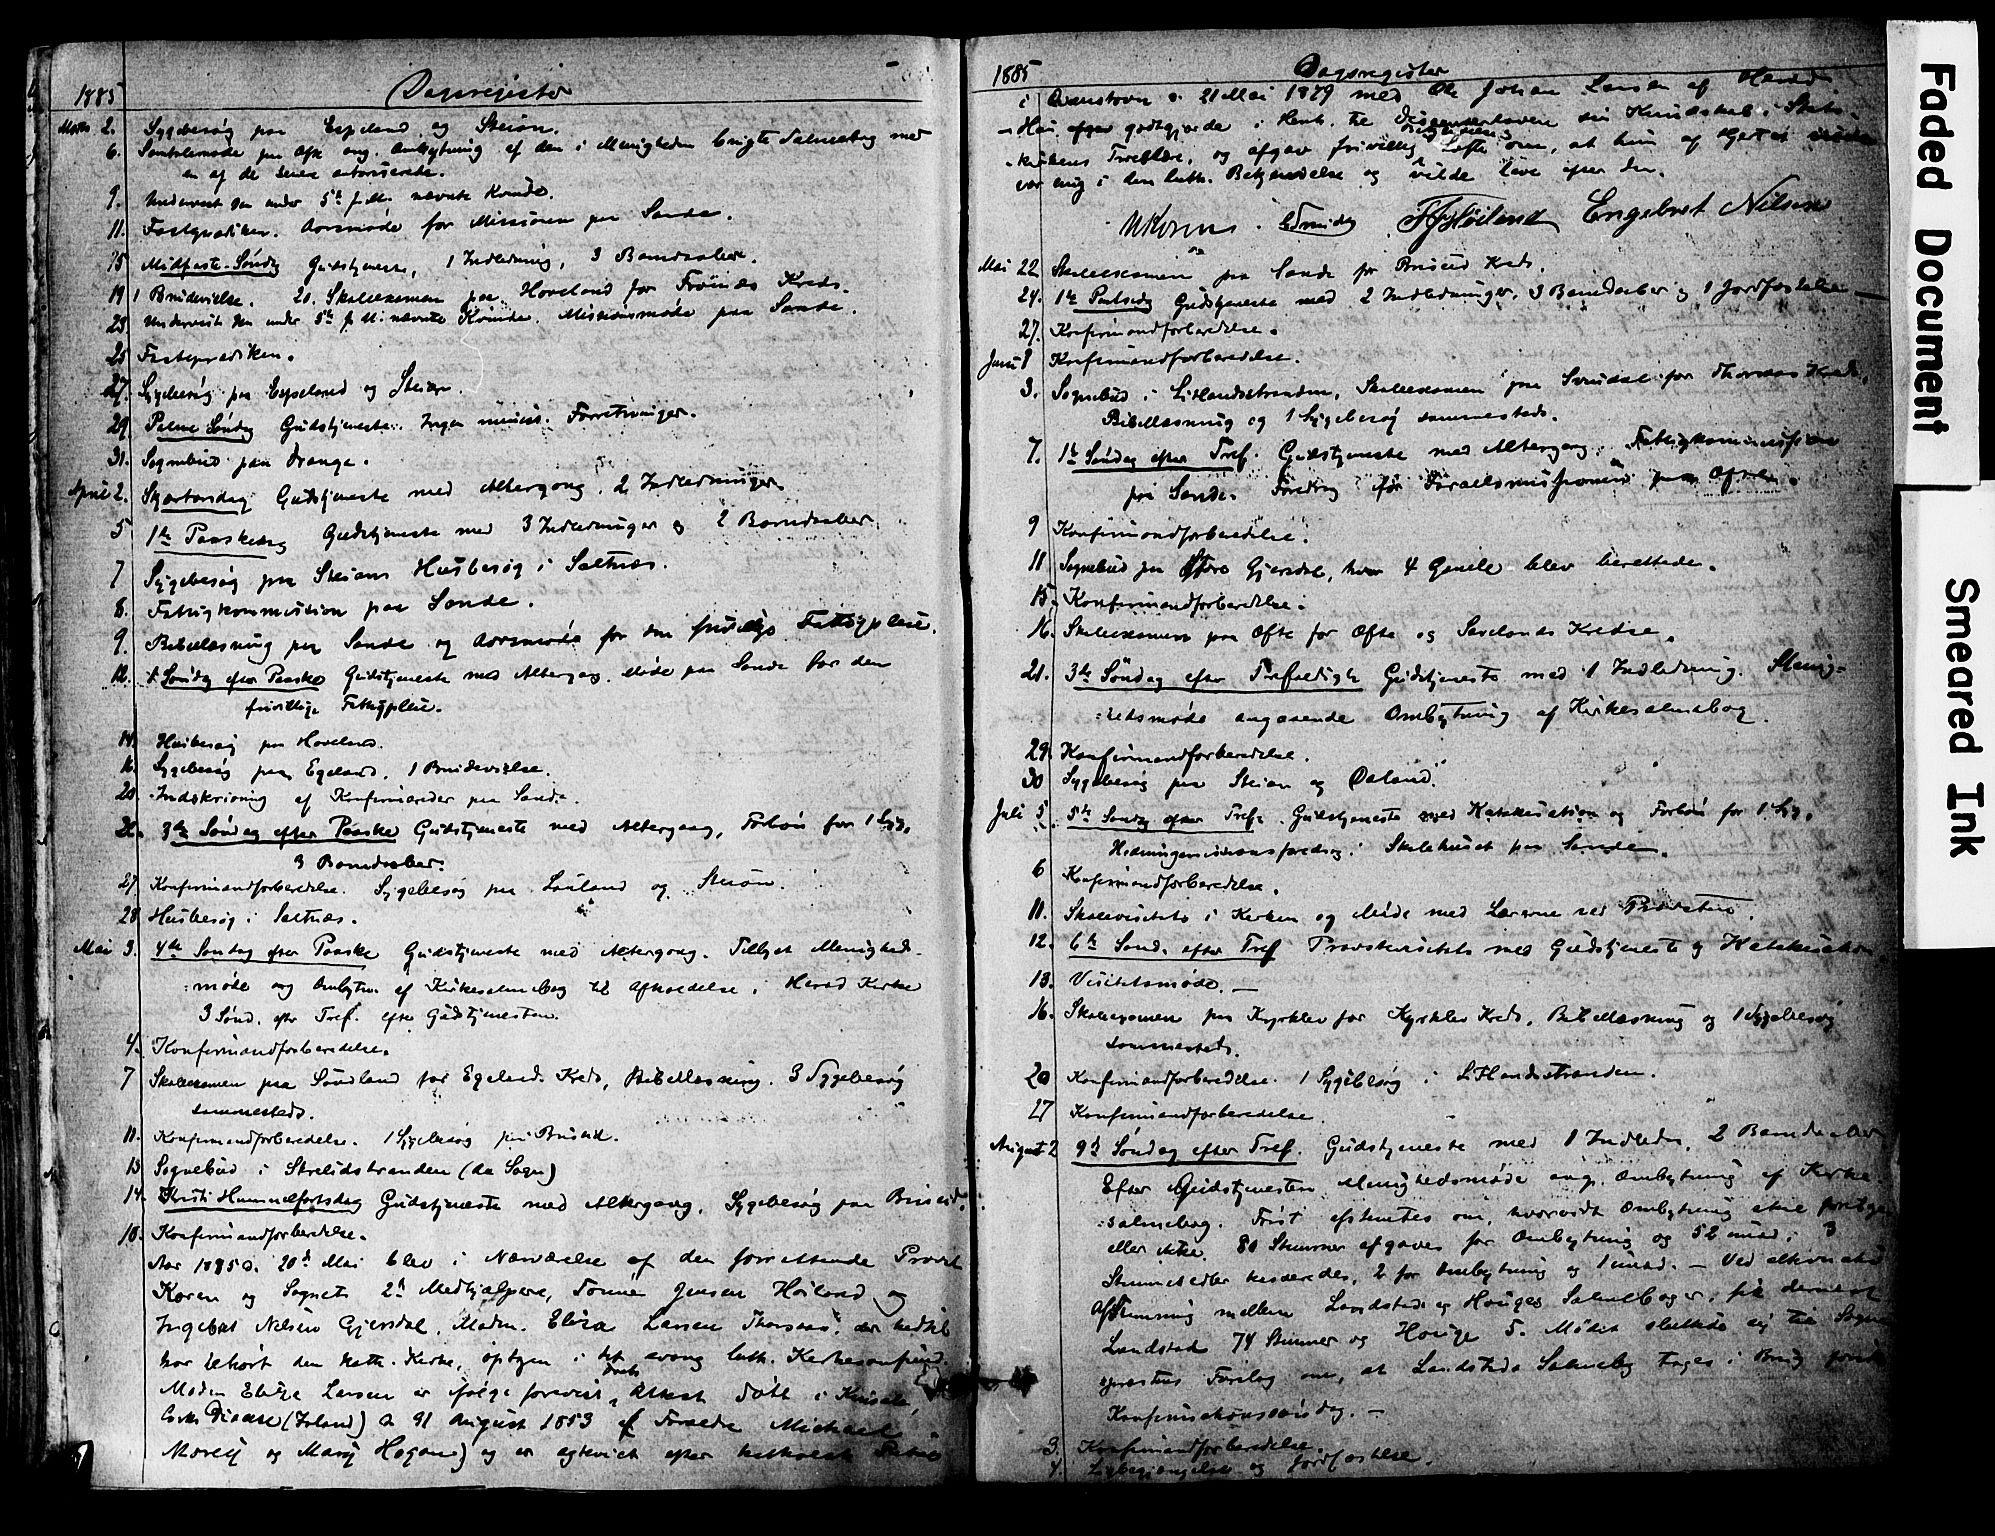 1885 Dagsregister
Marts 2. Sygebesøg paa Espeland og Steiøn.
6. Samtalemøde paa Øfte ang. Ombytning af den i Menigheden brugte Salmebog med
en af de senere autoriserede.
9. Underviist den under 5te f. M. nævnte Kvinde.
11. Fasteprædiken. Aarsmøde for Missionen paa Sande.
15 Midfaste-Søndag Gudstjeneste, 1 Indledning, 3 Barnedaaber.
19 1 Brudevielse. 20. Skoleexamen paa Hoveland for Kreds.
23. Underviist den under 5te f. M. nævnte Kvinde. Missionsmøde paa Sande.
25 Fasteprædiken.
27. Sygebesøg paa Espeland og Steiøn.
29. Palme Søndag Gudstjeneste. Ingen minist. Forretninger.
31. Sognebud paa Drange.
April 2. Skjærtorsdag Gudstjeneste med Altergang, 2 Indledninger.
5 1ste Paaskedag Gudstjeneste med 3 Indledninger og 2 Barnedaaber.
7 Sygebesøg paa Steiøn. Husbesøg i Saltnæs.
8. Fattigkommission paa Sande.
9. Bibellæsning paa Sande og Aarsmøde for den frivillige Fattigpleie.
12. 1 Søndag efter Paaske Gudstjeneste med Altergang. Møde paa Sande for den
frivillige Fattigpleie.
14. Husbesøg paa Hoveland.
16. Sygebesøg paa Egeland. 1 Brudevielse.
20. Indskrivning af Konfirmander paa Sande.
26. 3die Søndag efter Paaske Gudstjeneste med Altergang, Forbøn for 1 Syg,
3 Barnedaaber.
27 Konfirmandforberedelse. Sygebesøg paa Lauland og Steiøn.
28 Husbesøg i Saltnæs.
Mai 3. 4de Søndag efter Paaske Gudstjeneste med Altergang. Tillyst Menigheds-
møde ang Ombytn. af Kirkesalmebog til Afholdelse i Herad Kirke
3 Sønd. efter Tref. efter Gudstjenesten.
4. Konfirmandforberedelse.
7 Skoleexamen paa Sandland for Egeland Kreds, Bibellæsning. 3 Sygebesøg
sammesteds.
11. Konfirmandforberedelse. 1 Sygebesøg paa Briseid.
13 Sognebud i (da Sogn)
14. Kristi Himmelfartsdag Gudstjeneste med Altergang. Sygebesøg paa Briseid.
18. Konfirmandforberedelse.
Aar 1885 d. 20de Mai blev i Nærværelse af den forrettende Provst
Koren og Sognets 2de Medhjælpere, Tønnes Jensen Høiland og
Ingebret Nilsen Gjersdal, Madm. Eliza Larsen der hidtil
har tilhørt den kath. Kirke, optagen i det evang. luth. Kirkesamfund.
Madm Eliza Larsen er ifølge forevist Attest født i Kinsale,
Corks Diocese (Irland) d. August 1853 af Forældre Michael
og Mary Hogan) og er ægteviet efter katholsk
1885 Dagsregister
i d. 21 Mai 1879 med Ole Johan Larsen af Herad
Hun afgav godtgjorde i Henh. til Dissenterloven sin Kundskab i Stats-
kirkens Troeslære, og afgav frivillig Løfte om, at hun af Hjertet
var enig i den luth. Bekjendelse og vilde leve efter den.
U Koren. T J Høiland Engebret Nilsen
Mai 22 Skoleexamen paa Sande for Briseid Kreds.
24. 1ste Pintsedag Gudstjeneste med 2 Indledninger, 3 Barnedaaber og 1 Jordfæstelse
27. Konfirmandforberedelse.
Juni 1 Konfirmandforberedelse.
3. Sognebud i Litlandsstranden, Skoleexamen paa Svindal for Kreds,
Bibellæsning og 1 Sygebesøg sammesteds.
7. 1ste Søndag efter Tref. Gudstjeneste med Altergang. Fattigkommission
paa Sande. Foredrag for Israelsmissionen paa Øfte.
9 Konfirmandforberedelse.
11 Sognebud paa Øfdre Gjersdal, hvor 4 Gamle blev berettede.
15. Konfirmandforberedelse.
16. Skoleexamen paa Øfte for Øfte og Sævelands Kredse.
21. 3die Søndag efter Trefoldigh Gudstjeneste med 1 Indledning. Menig-
hedsmøde angaaende Ombytning af Kirkesalmebog.
29. Konfirmandforberedelse.
30 Sygebesøg paa Steiøn og
Juli 5 5te Søndag efter Tref. Gudstjeneste med Katekisation og Forbøn for 1 Syg,
Hedningemissionsforedrag i Skolehuset paa Sande.
6 Konfirmandforberedelse.
11. Skolevisitats i Kirken og Møde med Lærerne ved Provsten.
12. 6te Sønd. efter Tref Provstevisitats med Gudstjeneste og Katekisation.
13. Visitatsmøde. —
16. Skoleexamen paa Kyrklev for Kyrklev Kreds, Bibellæsning og 1 Sygebesøg
sammesteds.
20 Konfirmandforberedelse. 1 Sygebesøg i Litlandsstranden.
27 Konfirmandforberedelse
August 2 9de Søndag efter Tref. Gudstjeneste med 1 Indledn. 2 Barnedaaber
Efter Gudstjenesten Menighedsmøde ang. Ombytning af Kirke-
salmebog. Først afstemtes om, hvorvidt Ombytning skal foretages
eller ikke. 80 Stemmer afgaves for Ombytning og 52 imod; 3
Stemmesedler kasseredes, 2 for Ombytning og 1 imod. — Ved alternativ
Afstemning mellem Landstads og Hauges Salmebøger, fik dernæst
Landstad 74 Stemmer og Hauge 5. Mødet sluttede sig til Sogne-
præstens Forslag om, at Landstads Salmebog tages i Brug første
Konfirmationssøndag. —
3. Konfirmandforberedelse.
4. og Jordfæstelse.
Faded Document
Smeared Ink